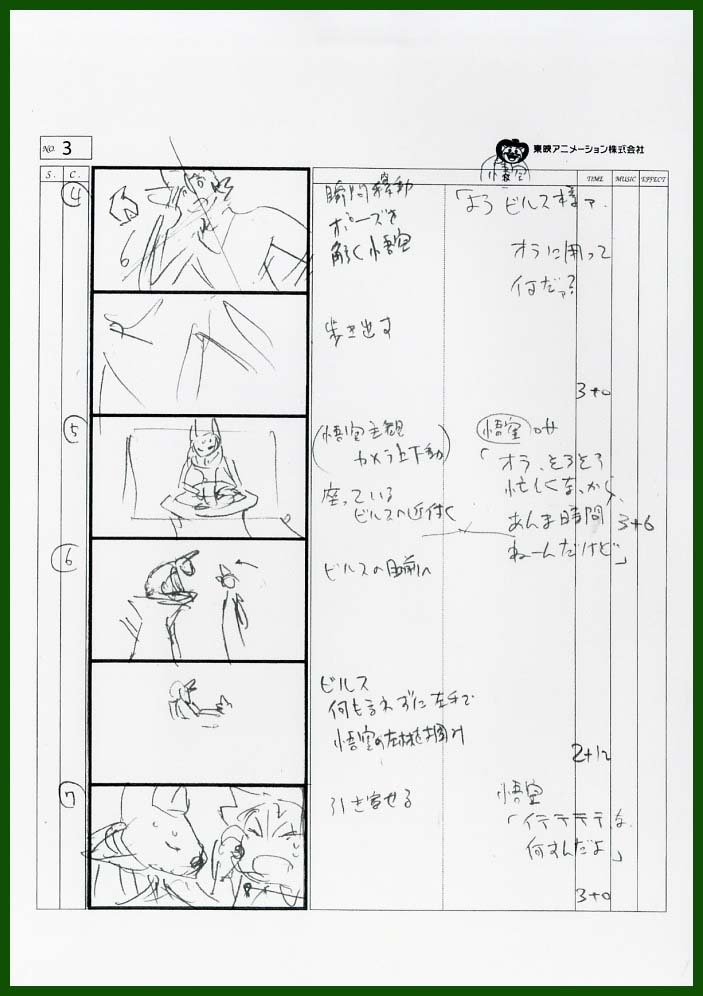 NO. 3
東映アニメーション株式会社
S. C. TIME MUSIC EFFECT
④
6
悟空
瞬間移動
ポーズを
解く悟空
「よう ビルス様ァ.
オラに用って
何だァ?
歩き出す
3+0
⑤
(悟空主観
カメラ上下動)
座っている
ビルスへ近付く
悟空
「オラ、そろそろ
忙しくなっから、
あんま時間
ねーんだけど」
3+6
⑥
ビルスの目前へ
ビルス
何も言わずに左手で
悟空の左
2+12
⑦
引き寄せる
悟空
「イテテテテな、
何すんだよ」
3+0